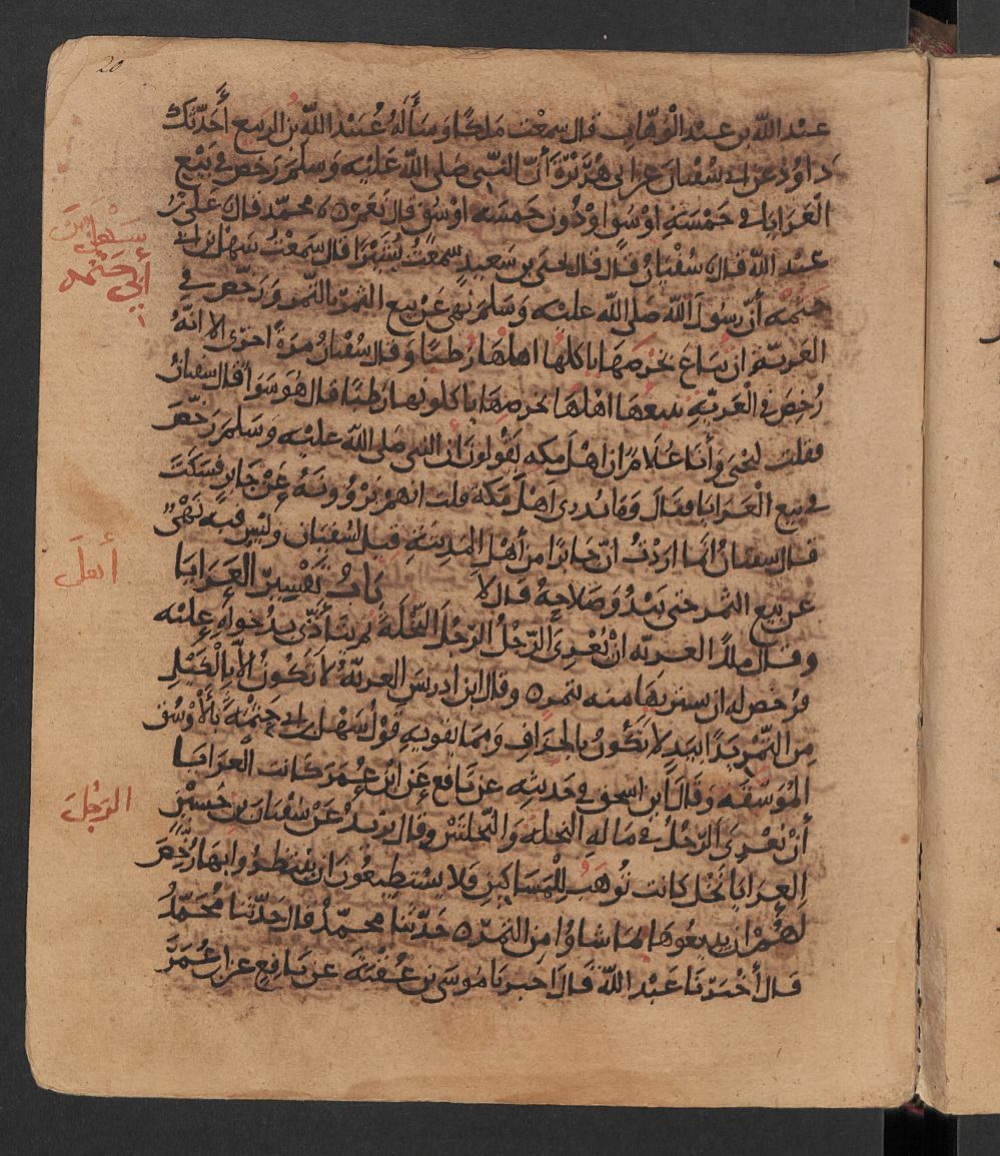 20
عبد الله بن عبد الوهاب قال سمعت مالكا وسأله عبيد الله بن الربيع أحدثك
داود عن أبي سفين عن أبي هريرة أن النبي صلى الله عليه وسلم رخص في بيع
العرايا في خمسة اوسق او دون خمسة اوسق قال نعم ه محمد قال علي بن
عبد الله قال سفيان قال قال يحيى بن سعيد سمعت بشيرا قال سمعت سهل بن أبي
حثمة أن رسول الله صلى الله عليه وسلم نهى عن بيع الثمر بالتمر ورخص في
العرية ان تباع بخرصها ياكلها اهلها رطبا وقال سفيان مرة اخرى الا انه
رخص في العرية يبيعها اهلها بخرصها ياكلونها رطبا قال هو سوا قال سفيان
فقلت ليحيى وأنا غلام ان اهل مكه يقولون ان النبي صلى الله عليه وسلم رخص
في بيع العرايا فقال وما يدري اهل مكة قلت انهم يروونه عن جابر فسكت
قال سفيان انما اردت ان جابرا من أهل المدينة قيل لسفيان وليس فيه نهي
عن بيع الثمر حتى يبدو صلاحه قال لا باب تفسير العرايا
وقال ملك العريه ان يعري الرجل الرجل النخلة ثم يتأذى بدخوله عليه
فرخص له ان يشتريها منه بتمر ه وقال ابن ادريس العرية لا تكون الا بالكيل
من التمر يدا بيد لا تكون بالجزاف ومما يقويه قول سهل بن أبي حثمة بالأوسق
الموسقه وقال ابن اسحق في حديثه عن نافع عن ابن عمر كانت العرايا
أن يعري الرجل في ماله النخله والنخلتين وقال يزيد عن سفيان بن حسين
العرايا نخل كانت توهب للمساكين فلا يستطيعون ان ينتظروا بها رخص
لهم ان يبيعوها بما شاوا من التمر ه حدثنا محمد قال حدثنا محمد
قال أخبرنا عبد الله قال اخبرنا موسى بن عقبة عن نافع عن ابن عمر
سهل بن
أبي حثمه
أهل
الرجل